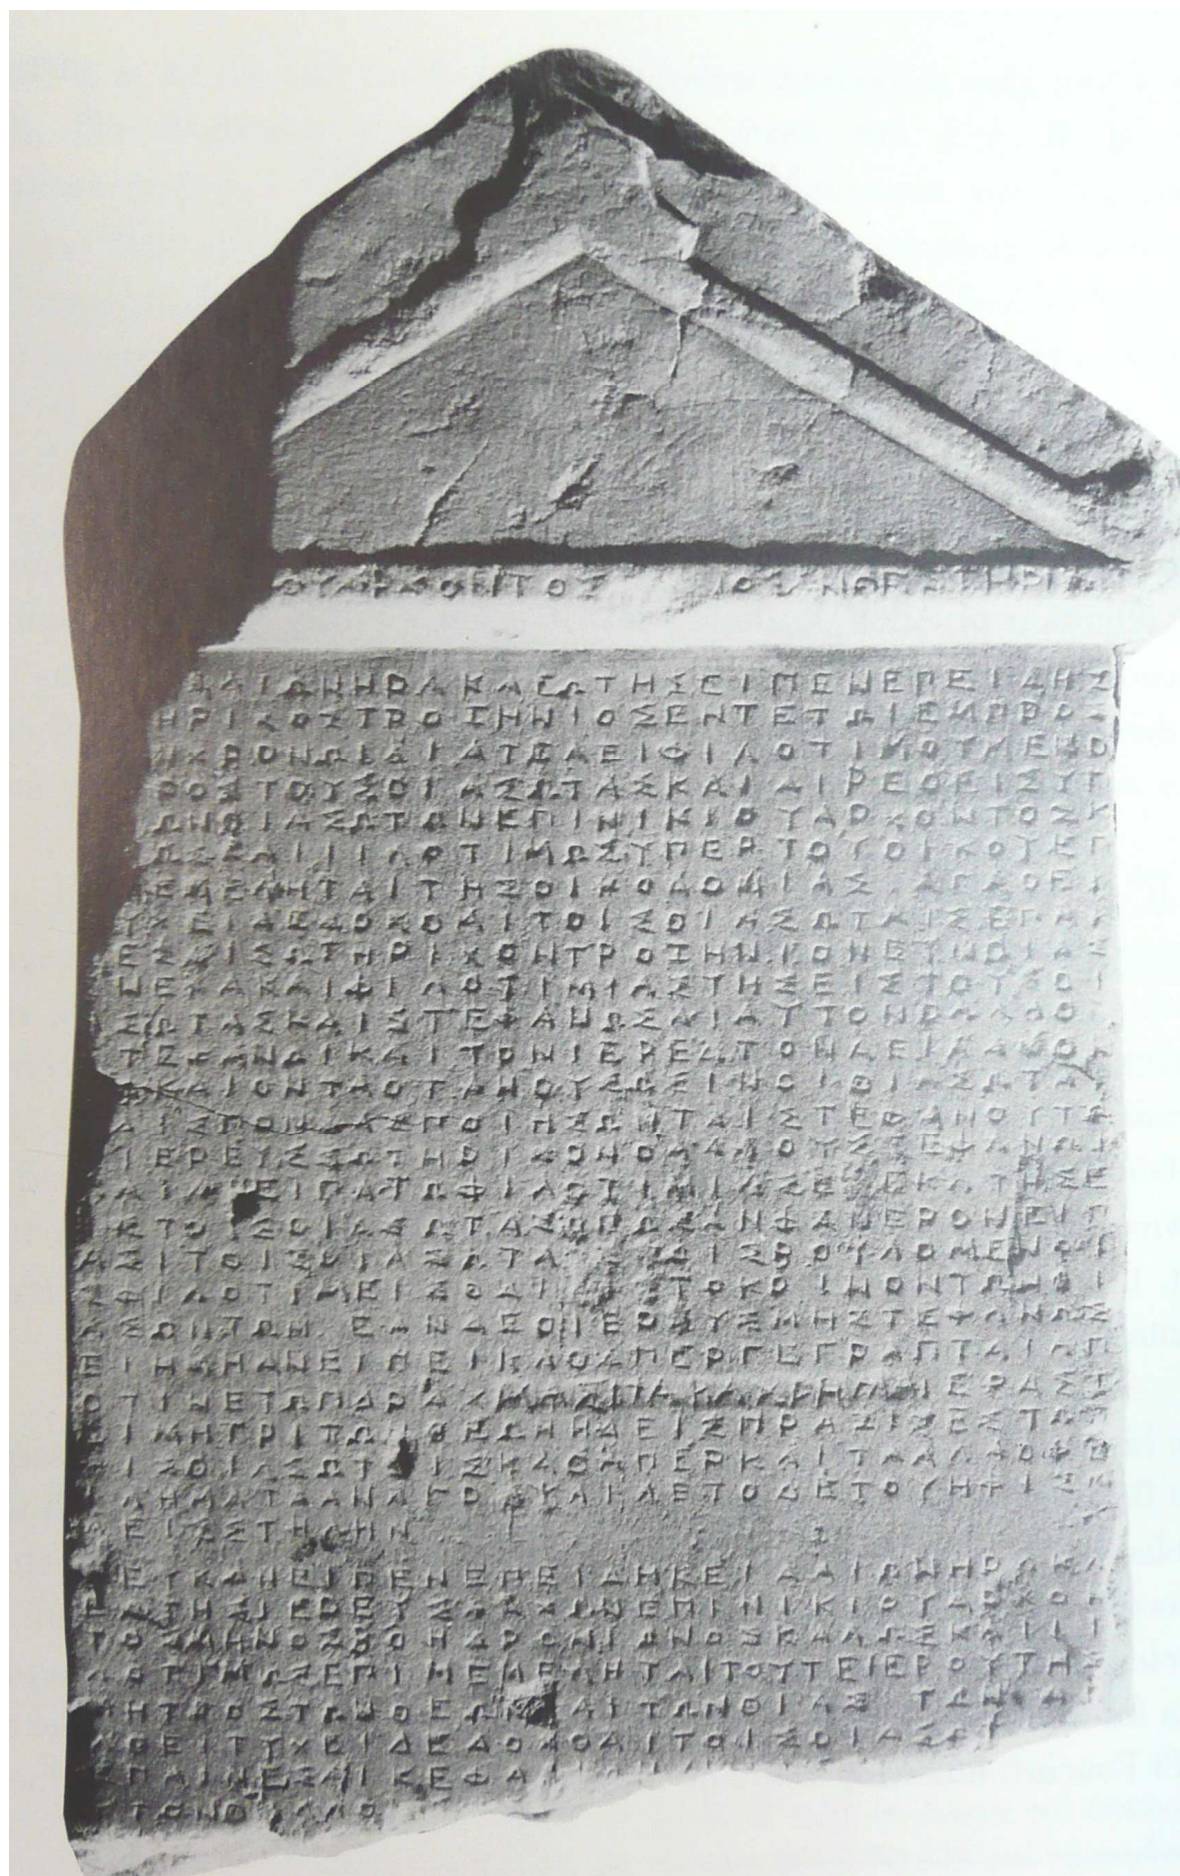 ΟΥΑΡΧΟΝΤΟΣ ΟΣΑΝΘΕΣΤΗΡΙ
ΑΛΙΩΝΗΡΑΚΛΕΩΤΗΣΕΙΠΕΝΕΠΕΙΔΗΣ
ΗΡΙΧΟΣΤΡΟΖΗΝΙΟΣΕΝΤΕΤΩΙΕΜΠΡΟΣ
ΝΧΡΟΝΩΙΔΙΑΤΕΛΕΙΦΙΛΟΤΙΜΟΥΜΕΝΟ
ΡΟΣΤΟΥΣΘΙΑΣΩΤΑΣΚΑΙΑΙΡΕΘΕΙΣΥΠ
ΩΝΘΙΑΣΩΤΩΝΕΠΙΝΙΚΙΟΥΑΡΧΟΝΤΟΣΚ
ΩΣΚΑΙΦΙΛΟΤΙΜΩΣΥΠΕΡΤΟΥΟΙΚΟΥΕΠ
ΕΜΕΛΗΤΑΙΤΗΣΟΙΚΟΔΟΜΙΑΣ ΑΓΑΘΕΙ
ΥΧΕΙΔΕΔΟΧΘΑΙΤΟΙΣΘΙΑΣΩΤΑΙΣΕΠΑΙ
ΕΣΑΙΣΩΤΗΡΙΧΟΝΤΡΟΖΗΝΙΟΝΕΥΝΟΙΑΣ
ΝΕΚΑΚΑΙΦΙΛΟΤΙΜΙΑΣΤΗΣΕΙΣΤΟΥΣΘΙ
ΣΩΤΑΣΚΑΙΣΤΕΦΑΝΩΣΑΙΑΥΤΟΝΘΑΛΛΟΥ
ΤΕΦΑΝΩΙΚΑΙΤΟΝΙΕΡΕΑΤΟΝΑΕΙΛΑΧΟ
ΟΤΑΝΘΥΩΣΙΝΟΙΘΙΑΣΩΤΑΙ
ΑΙΣΠΟΝΔΑΣΠΟΙΗΣΩΝΤΑΙΣΤΕΦΑΝΟΥΤΩ
ΙΕΡΕΥΣΣΩΤΗΡΙΧΟΝΘΑΛΛΟΥΣΤΕΦΑΝΩΙ
ΚΑΙΑΝΕΙΠΑΤΩΦΙΛΟΤΙΜΙΑΣΕΝΕΚΑΤΗΣΕ
ΣΤΟΥΣΘΙΑΣΩΤΑΣΟΠΩΣΑΝΦΑΝΕΡΟΝΕΙΠ
ΑΣΙΤΟΙΣΘΙΑΣΩΤΑΙΣ ΟΙΣΒΟΥΛΟΜΕΝΟΙ
ΣΦΙΛΟΤΙΜΕΙΣΘΑΙΕΙΣΤΟΚΟΙΝΟΝΤΩΝΘΙ
ΑΣΩΤΩΝ ΕΑΝΔΕΟΙΕΡΕΥΣΜΗΣΤΕΦΑΝΩΣ
ΕΙΗΜΗΑΝΕΙΠΕΙΚΑΘΑΠΕΡΓΕΓΡΑΠΤΑΙΑΠ
ΟΤΙΝΕΤΩΠΔΡΑΧΜΑΣΠΑΡΑΧΡΗΜΑΙΕΡΑΣΤ
ΕΙΜΗΤΡΙΤΩΝΘΕΩΝΗΔΕΙΣΠΡΑΞΙΣΕΣΤΩΤ
ΟΙΣΘΙΑΣΩΤΑΙΣΚΑΘΑΠΕΡΚΑΙΤΑΛΛΑΟΦΕ
ΙΛΗΜΑΤΑΑΝΑΓΡΑΨΑΙΔΕΤΟΔΕΤΟΨΗΦΙΣΜ
ΑΕΙΣΣΤΗΛΗΝ
ΕΙΠΕΝΕΠΕΙΔΗΚΕΦΑΛΙΩΝΗΡΑΚΛ
ΕΩΤΗΣΙΕΡΕΥΣΛΑΧΩΝΕΠΙΝΙΚΙΟΥΑΡΧΟΝ
ΤΟΣΜΗΝΟΣΒΟΗΔΡΟΜΙΩΝΟΣΚΑΛΩΣΚΑΙΦΙ
ΛΟΤΙΜΩΣΕΠΙΜΕΜΕΛΗΤΑΙΤΟΥΤΕΙΕΡΟΥΤΗΣ
ΜΗΤΡΟΣΤΩΝΘΕΩΝΚΑΙΤΩΝΘΙΑΣ ΤΩΝ
ΑΘΕΙΤΥΧΕΙΔΕΔΟΧΘΑΙΤΟΙΣΘΙΑΣΩΤ
ΕΠΑΙΝΕΣΑΙΚΕΦΑΛΙ
ΤΟΝΘΑΛΛΟ